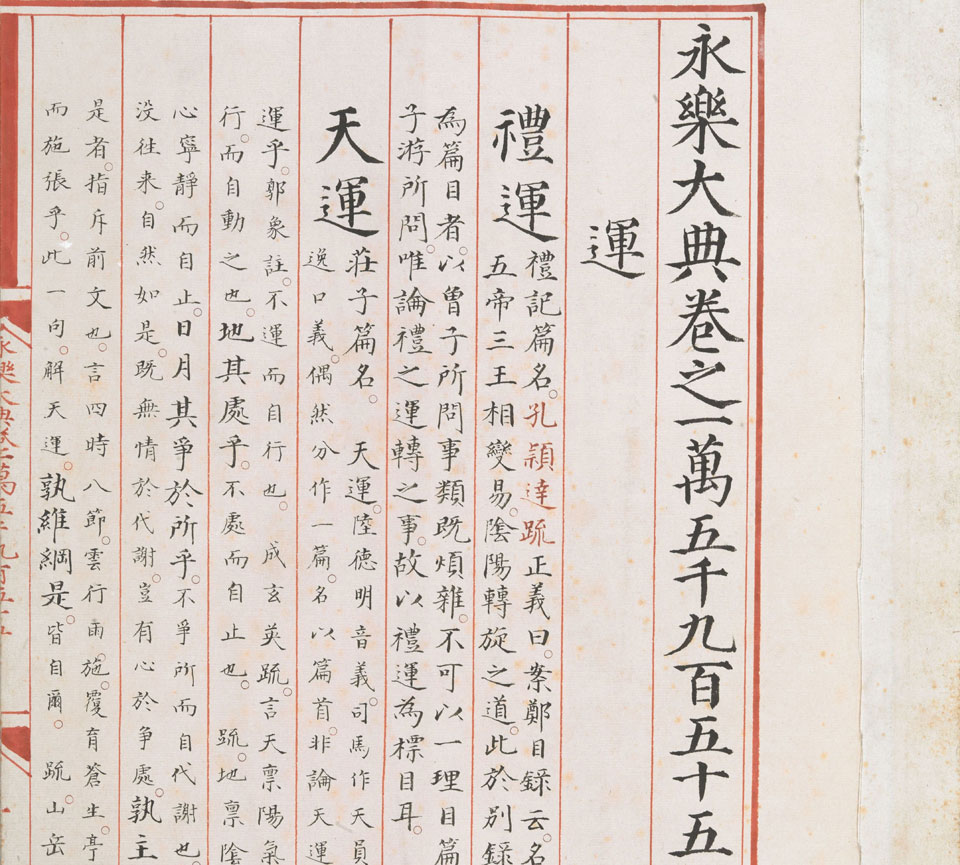 永樂大典卷之一萬五千九百五十五
運
禮運
禮記篇名。孔穎達疏正義曰。案鄭目錄云。名
五帝三王相變易。陰陽轉旋之道。此於別錄
為篇目者。以曾子所問事類既煩雜。不可以一理目篇
子游所問。唯論禮之運轉之事。故以禮運為標目耳。
天運
莊子篇名。 天運。陸德明音義。司馬作天員
逸口義。偶然分作一篇。名以篇首。非論天運
運乎。郭象註。不運而自行也。 成玄英疏。言天稟陽氣
行。而自動之也。地其處乎。不處而自止也。 疏。地稟陰
心寧靜而自止。日月其爭於所乎。不爭所而自代謝也。
没往来。自然如是。既無情於代謝。豈有心於爭處。孰主
是者。指斥前文也。言四時八節。雲行雨施。覆育蒼生。亭
而施張乎。此一向。解天運。孰維綱是。皆自爾。 疏。山岳